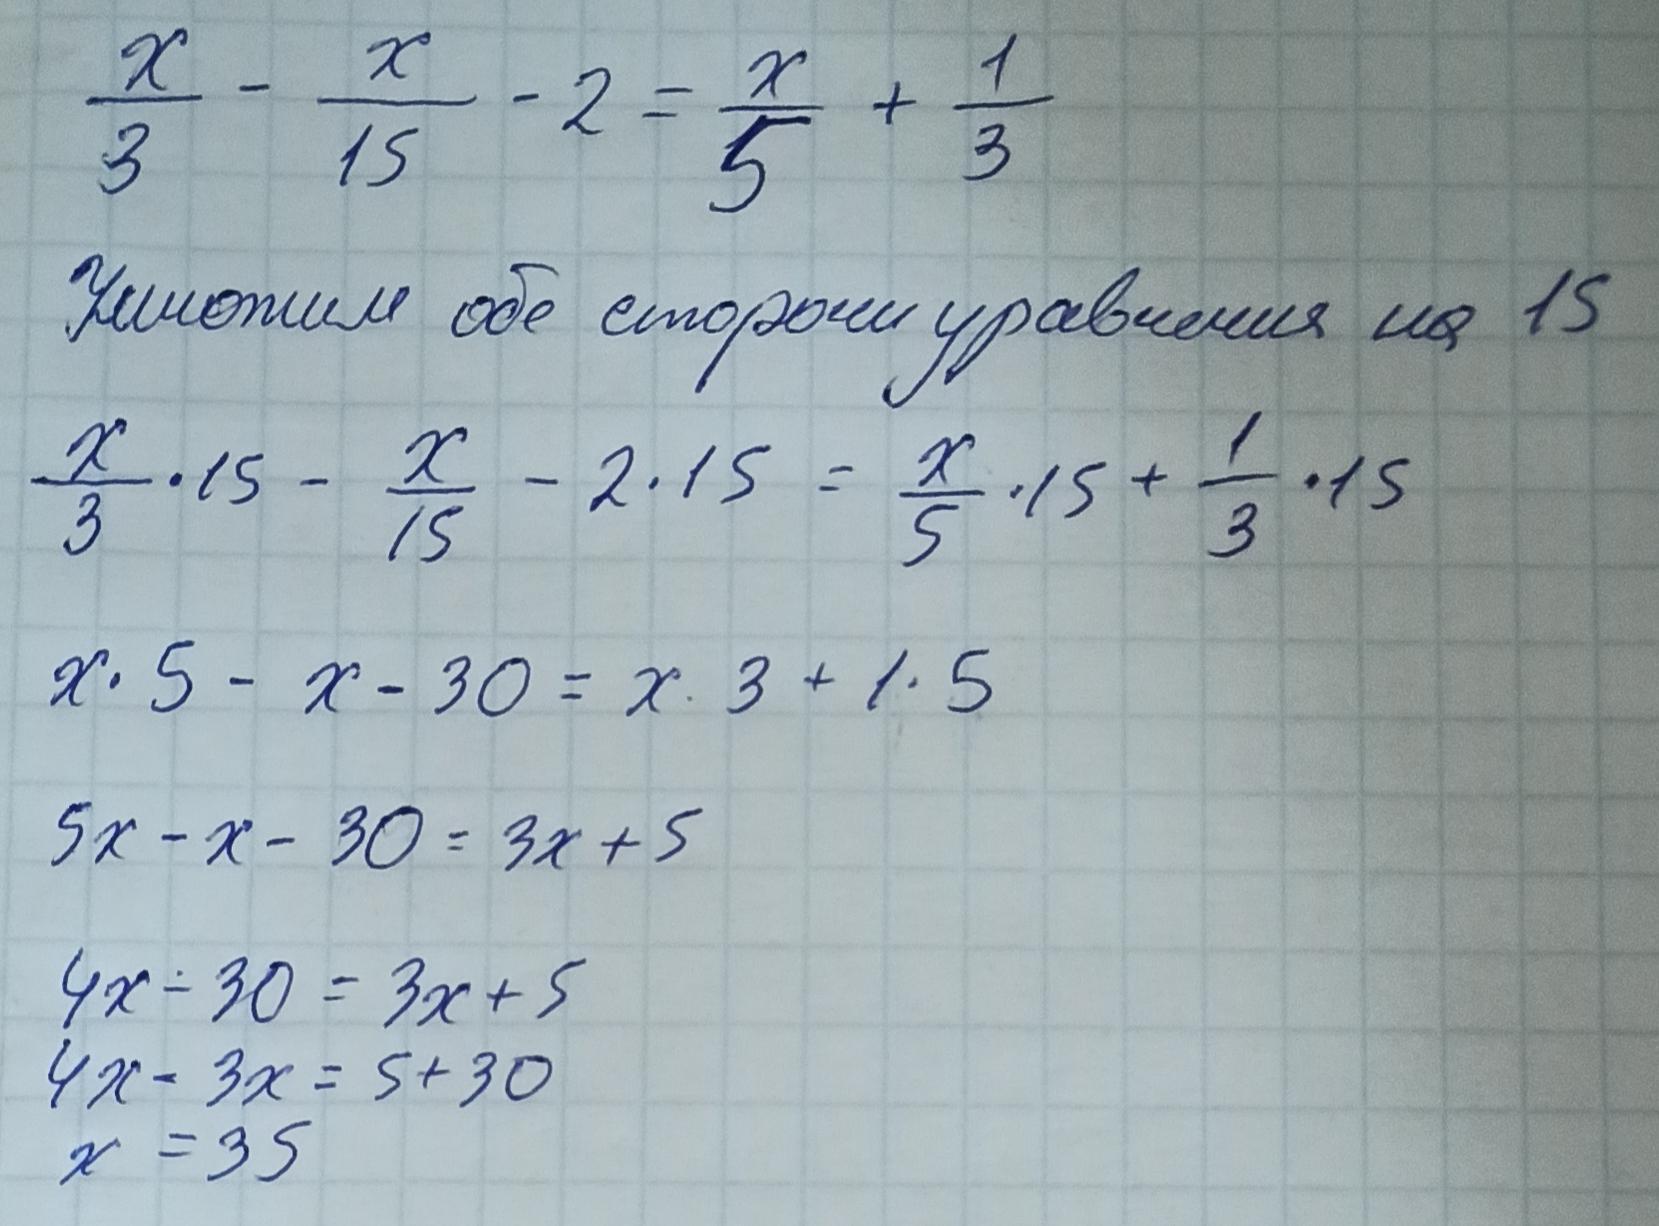 x/3 - x/15 - 2 = x/5 + 1/3
Умножим обе стороны уравнения на 15
x/3 · 15 - x/15 - 2 · 15 = x/5 · 15 + 1/3 · 15
x · 5 - x - 30 = x · 3 + 1 · 5
5x - x - 30 = 3x + 5
4x - 30 = 3x + 5
4x - 3x = 5 + 30
x = 35